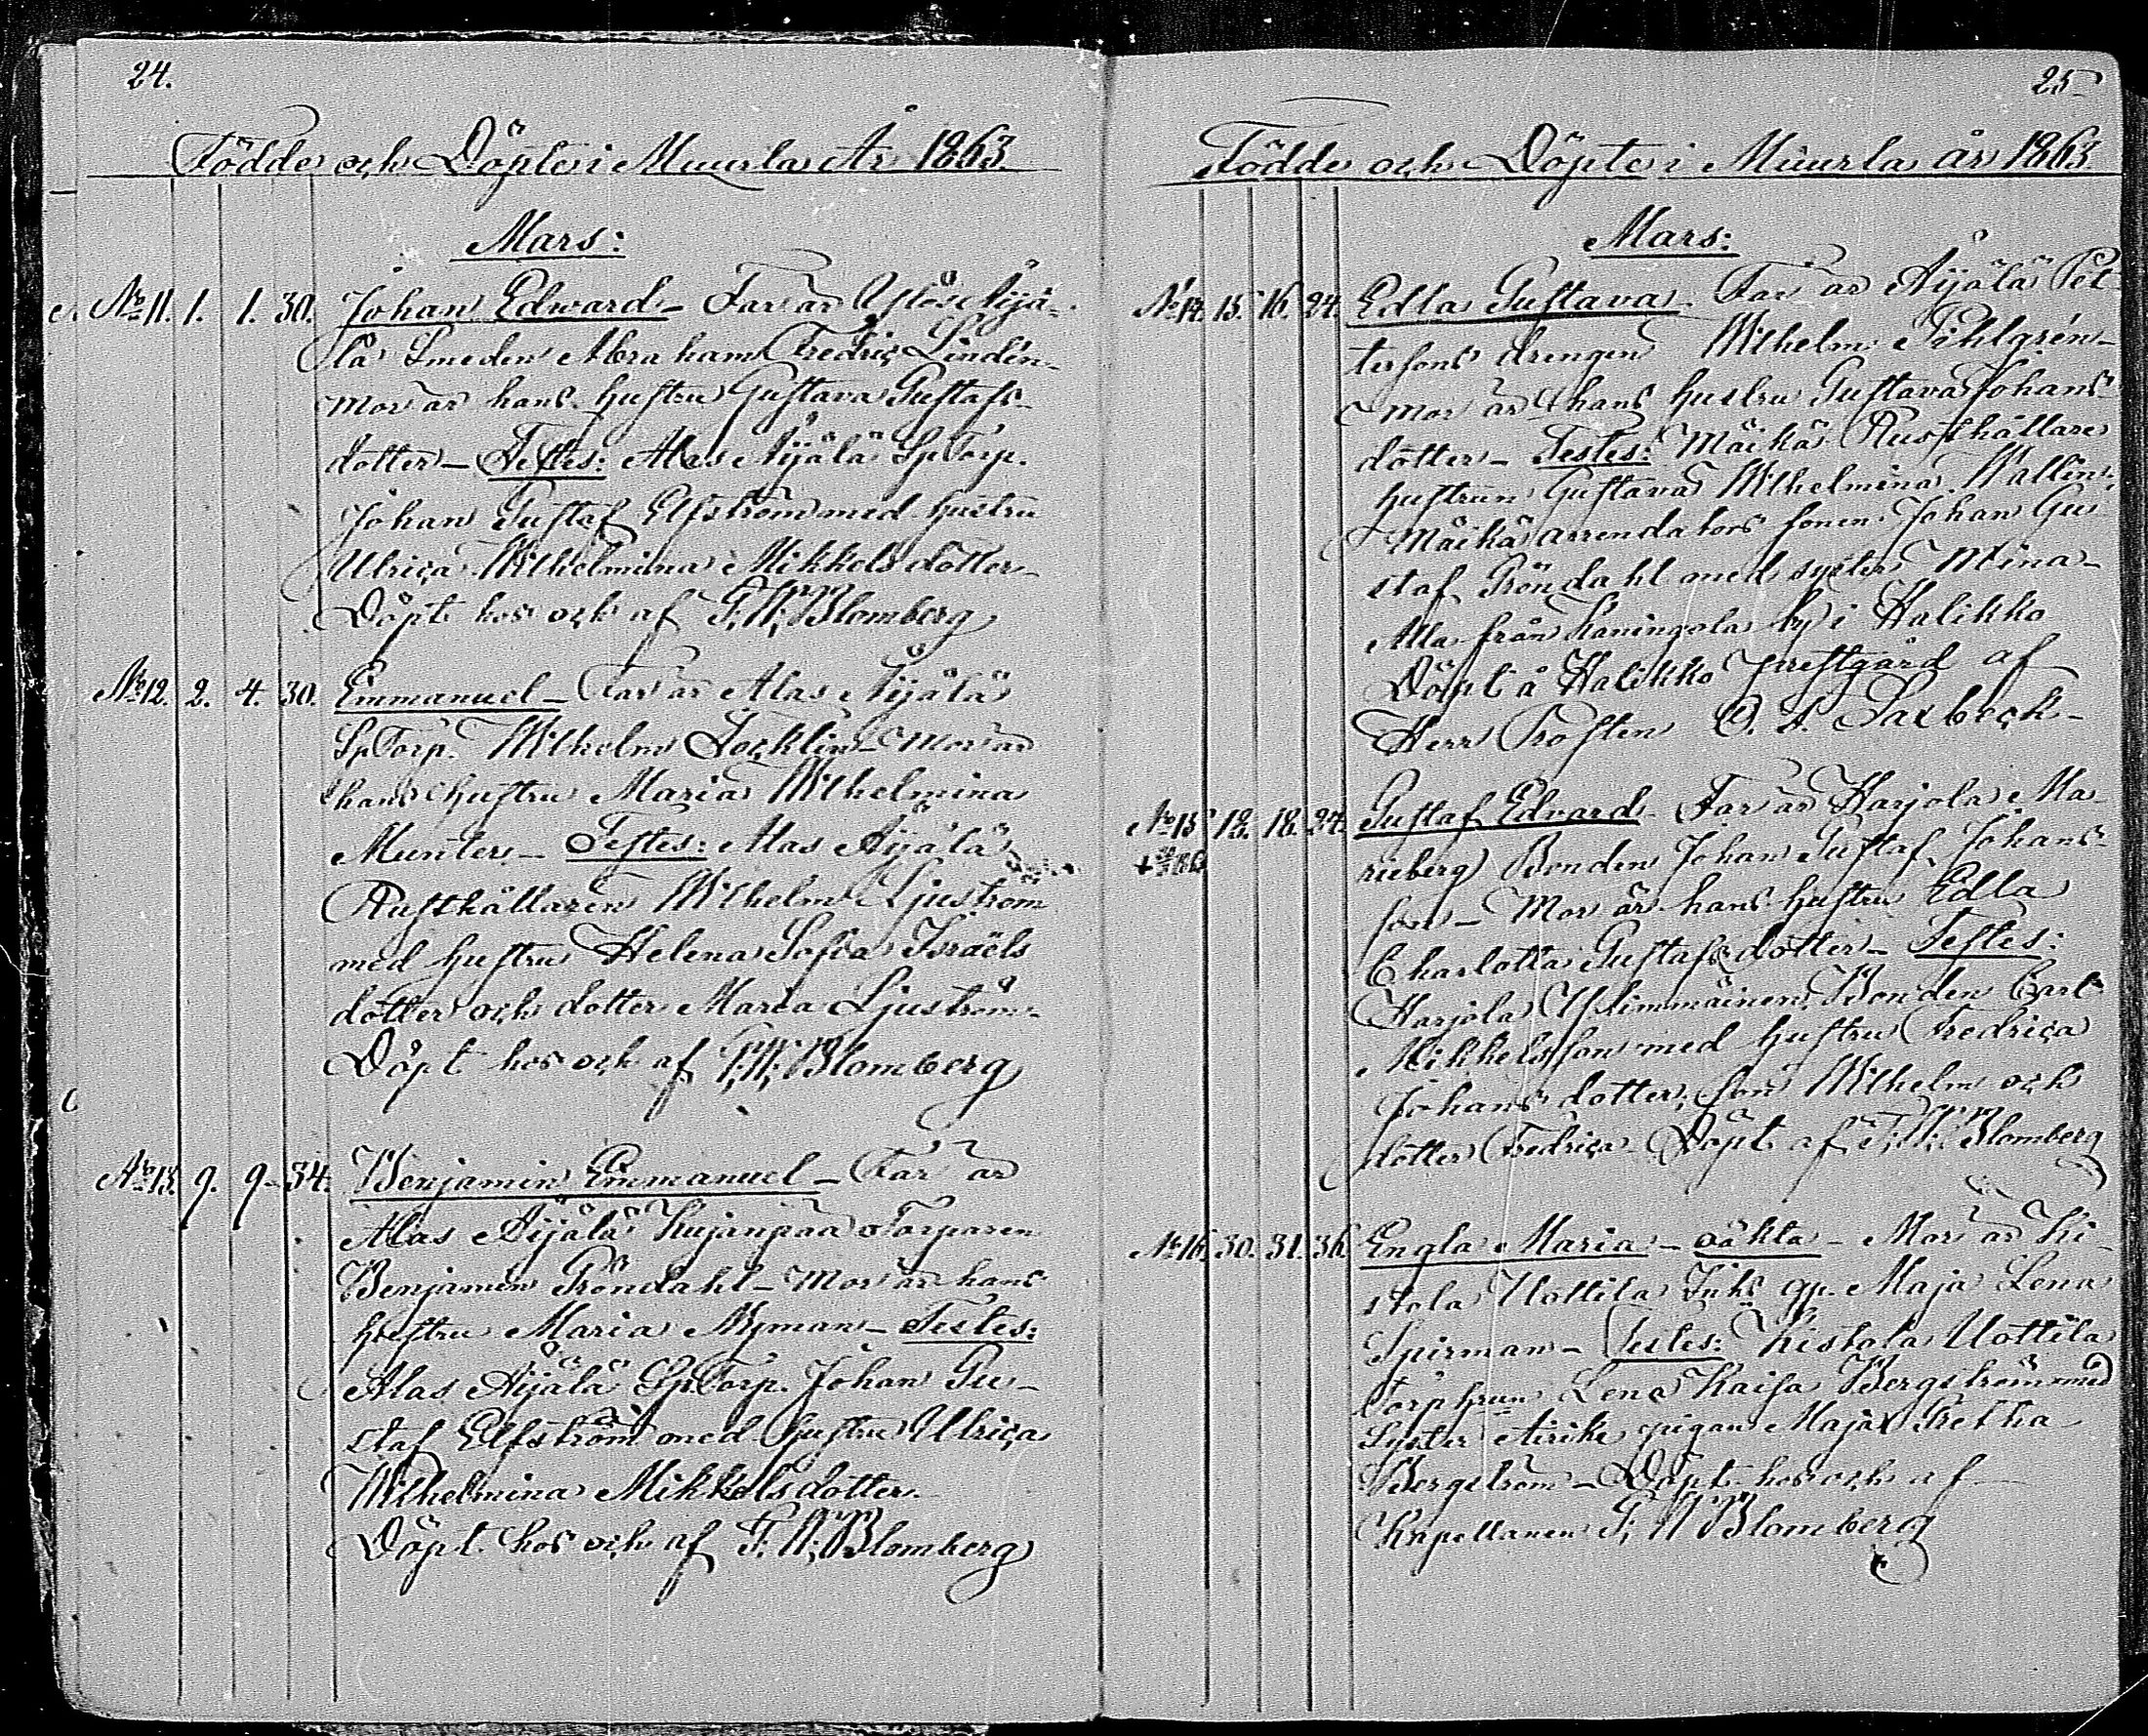 24.
Födde och Döpte i Muurla År 1863.
Mars:
No 11. 1. 1. 30. Johan Edward - Far är Ylös Äijä-
lä Smeden Abraham Fredric Lindén -
Mor är hans hustru Gustava Gustafs-
dotter - Testes: Alas Äijälä Sp.Torp.
Johan Gustaf Elfström med hustru
Ulrica Wilhelmina Mikkelsdotter -
Döpt hos och af F; W; Blomberg
No 12. 2. 4. 30. Emmanuel - Far är Alas Äijälä
Sp.Torp. Wilhelm Jocklin - Mor är
hans hustru Maria Wilhelmina
Munter - Testes: Alas Äijälä
Rusthållaren Wilhelm Ljuström
med hustru Helena Sofia Israëls
dotter och dotter Maria Ljuström -
Döpt hos och af F; W; Blomberg
No 13. 9. 9. 34. Benjamin Emmanuel - Far är
Alas Äijälä Kujanpää Torparen
Benjamin Gröndahl - Mor är hans
hustru Maria Nyman - Testes:
Alas Äijälä Sp.Torp. Johan Gu-
staf Elfström med hustru Ulrica
Wilhelmina Mikkelsdotter.
Döpt hos och af F; W; Blomberg
25
Födde och Döpte i Muurla år 1863
Mars:
No 14. 15. 16. 24. Edla Gustava. Far är Äijälä Pet-
tersons drengen Wilhelm Pihlgrén -
Mor är hans hustru Gustava Johans
dotter - Testes: Mäikä Rusthållare
hustrun Gustava Wilhelmina Wallin;
Mäikä arrendators sonen Johan Gu
staf Gröndahl med syster Mina -
Alla från Kaningola by i Halikko
Döpt å Halikko prestgård af
Herr Prosten O. S. Saxbeck -
No 15 12. 18. 24. Gustaf Edvard. Far är Harjola Ma-
rieberg Bonden Johan Gustaf Johans-
son - Mor är hans hustru Edla
Charlotta Gustafsdotter - Testes:
Harjola Ylimmäinen Bonden Carl
Mikkelsson med hustru Fredrica
Johansdotter; son Wilhelm och
dotter Fredrica - Döpt af F; W; Blomberg
No 16. 30. 31. 36. Engla Maria - oäkta - Mor är Ki-
stola Uottila Inhs qp. Maja Lena
Spirman - Testes: Kistola Uottila
Torphrun Lena Kaisa Bergström med
Syster pigan Maja Gretha
Bergström - Döpt hos och af
Kapellanen F; W Blomberg